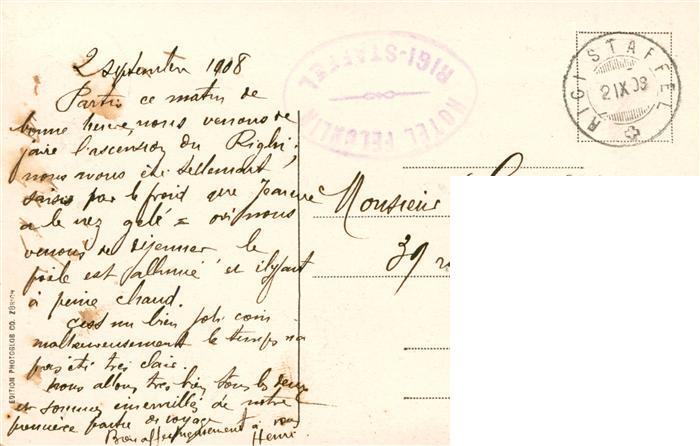 2 septembre 1908
Partis ce matin de
bonne heure, nous venons de
faire l'ascension du Righi;
nous avons été tellement
saisis par le froid que Jeanne
a le nez gelé = où nous
venons de déjeuner le
poêle est allumé et il y fait
à peine chaud.
C'est un bien joli coin
malheureusement le temps n'a
pas été très clair.
Nous allons très bien tous les deux
et sommes émerveillés de notre
première partie de voyage
Bien affectueusement à vous
Henri
HOTEL FELCHLIN
RIGI-STAFFEL
RIGI STAFFEL
2 IX 08
Monsieur
39
EDITION PHOTOGLOB CO. ZÜRICH